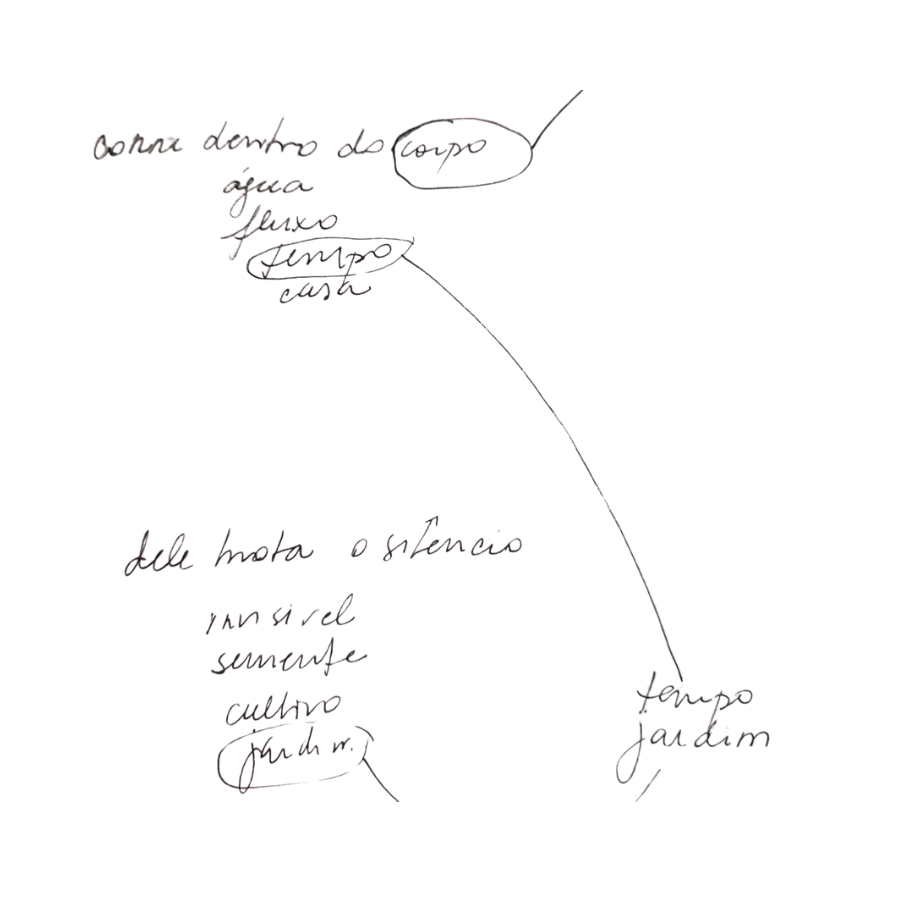 corre dentro do corpo
água
fluxo
tempo
casa
dele brota o silêncio
invisivel
semente
cultivo
jardim.
tempo
jardim